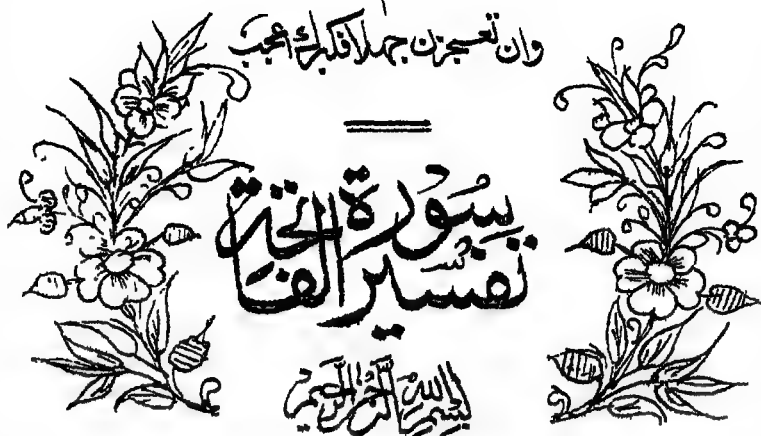 وان تعجبن جهلا فكبرك اعجب
تفسير سُورة الفاتحة
بسم الله الرحمن الرحيم